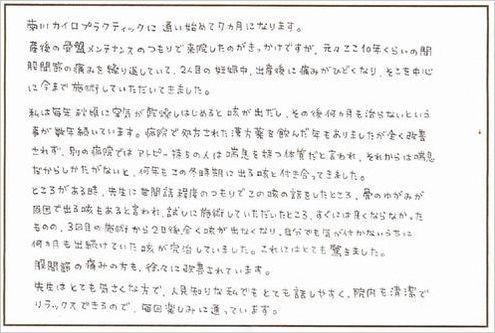 菊川カイロプラクティックに通い始めて7カ月になります。
産後の骨盤メンテナンスのつもりで来院したのがきっかけですが、元々ここ10年くらいの間
股関節の痛みを繰り返していて、2人目の妊娠中、出産後に痛みがひどくなり、そこを中心
に今まで施術していただいてきました。
私は毎年秋頃に空気が乾燥しはじめると咳が出だし、その後何カ月も治らないという
事が数年続いています。病院で処方された漢方薬を飲んだ年もありましたが全く改善
されず、別の病院ではアトピー持ちの人は喘息を持つ体質だと言われ、それからは喘息
だからしかたがないと、何年もこの冬時期に出る咳と付き合ってきました。
ところがある時、先生に世間話程度のつもりでこの咳の話をしたところ、骨のゆがみが
原因で出る咳もあると言われ、試しに施術していただいたところ、すぐには良くならなかった
ものの、3回目の施術から2日後全く咳が出なくなり、自分でも気が付かないうちに
何カ月も出続けていた咳が完治していました。これにはとても驚きました。
股関節の痛みの方も、徐々に改善されています。
先生はとても気さくな方で、人見知りな私でもとても話しやすく、院内も清潔で
リラックスできるので、毎回楽しみに通っています。